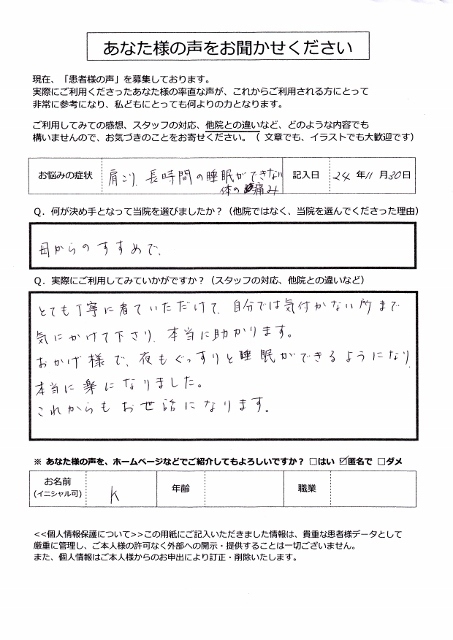 あなた様の声をお聞かせください
現在、「患者様の声」を募集しております。
実際にご利用くださったあなた様の率直な声が、これからご利用される方にとって
非常に参考になり、私どもにとっても何よりの力となります。
ご利用してみての感想、スタッフの対応、他院との違いなど、どのような内容でも
構いませんので、お気づきのことをお寄せください。（ 文章でも、イラストでも大歓迎です）
お悩みの症状 肩こり、長時間の睡眠ができない 記入日 24 年 11 月 30 日
体の痛み
Q．何が決め手となって当院を選びましたか？（他院ではなく、当院を選んでくださった理由）
母からのすすめで、
Q．実際にご利用してみていかがですか？（スタッフの対応、他院との違いなど）
とても丁寧に看ていただけて、自分では気付かない所まで
気にかけて下さり、本当に助かります。
おかげ様で、夜もぐっすりと睡眠ができるようになり
本当に楽になりました。
これからもお世話になります。
※ あなた様の声を、ホームページなどでご紹介してもよろしいですか？ □はい ☑匿名で □ダメ
お名前 K 年齢 職業
(イニシャル可)
<<個人情報保護について>>この用紙にご記入いただきました情報は、貴重な患者様データとして
厳重に管理し、ご本人様の許可なく外部への開示・提供することは一切ございません。
また、個人情報はご本人様からのお申出により訂正・削除いたします。